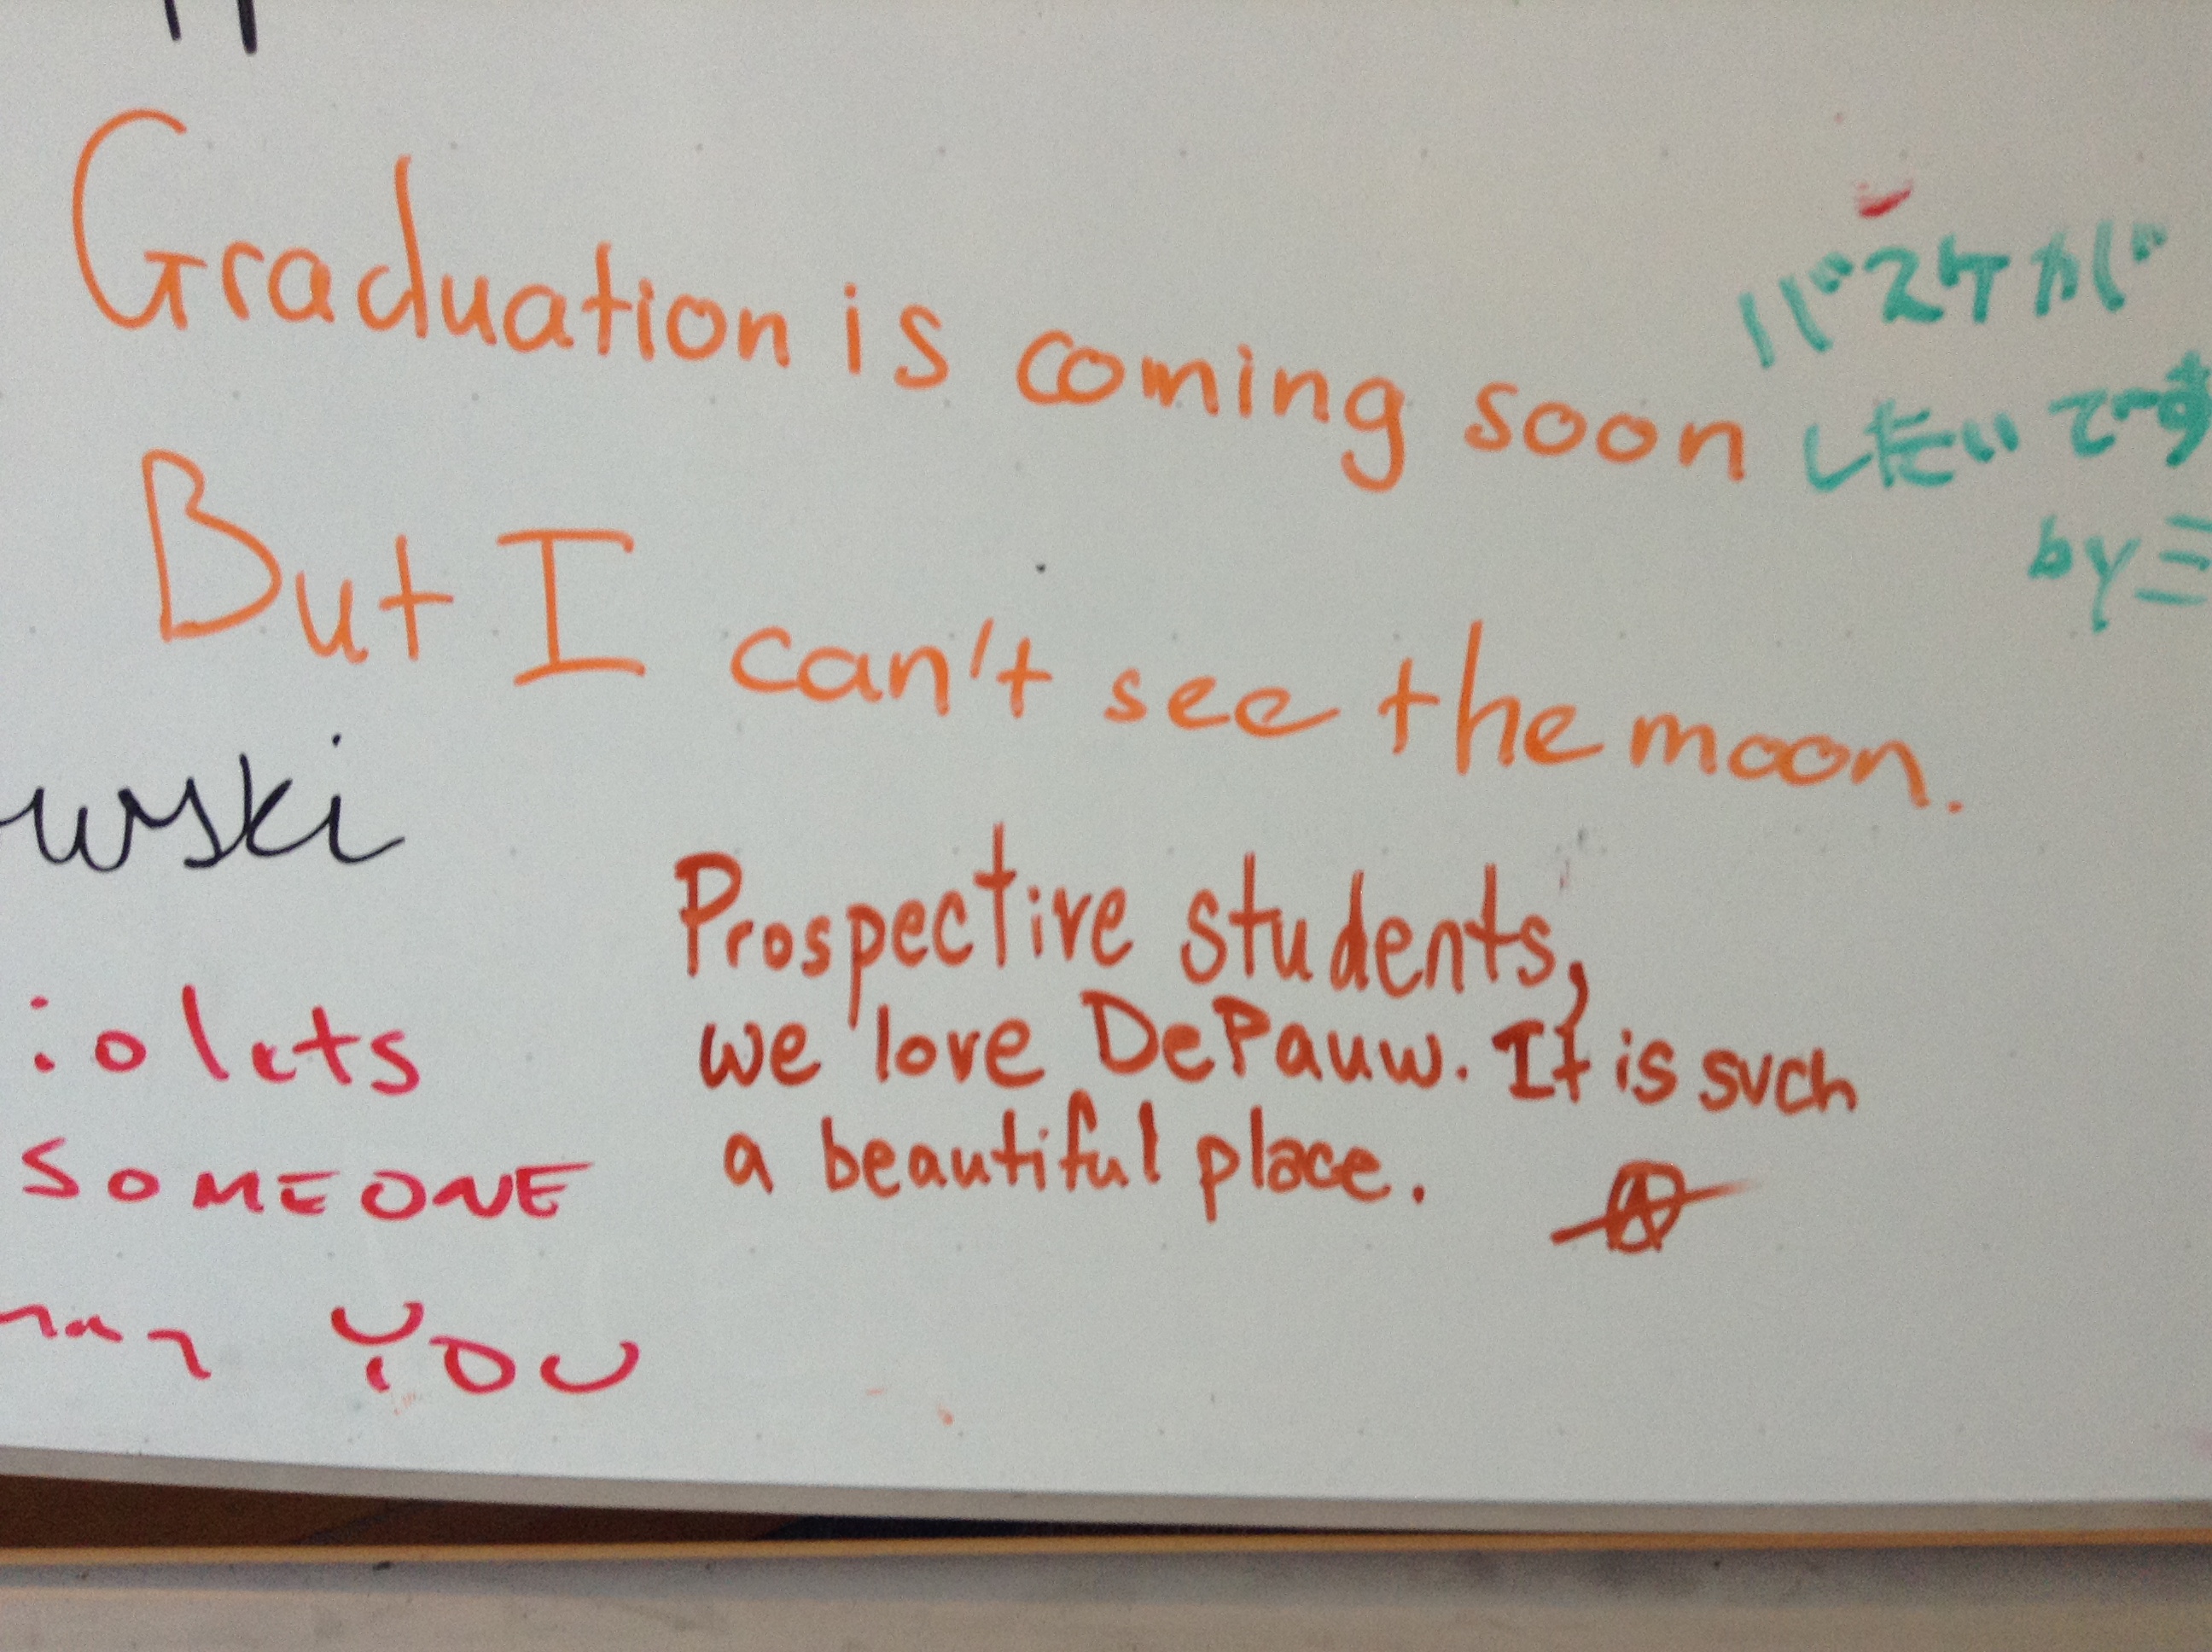 Graduation is coming soon
But I can't see the moon.
バスケが
したいです
by 三
wski
iolets
SOMEONE
YOU
Prospective students,
we love DePauw. It is such
a beautiful place.